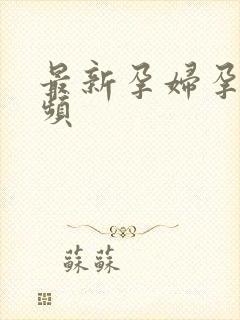 最新孕婦孕
頻
蘇蘇